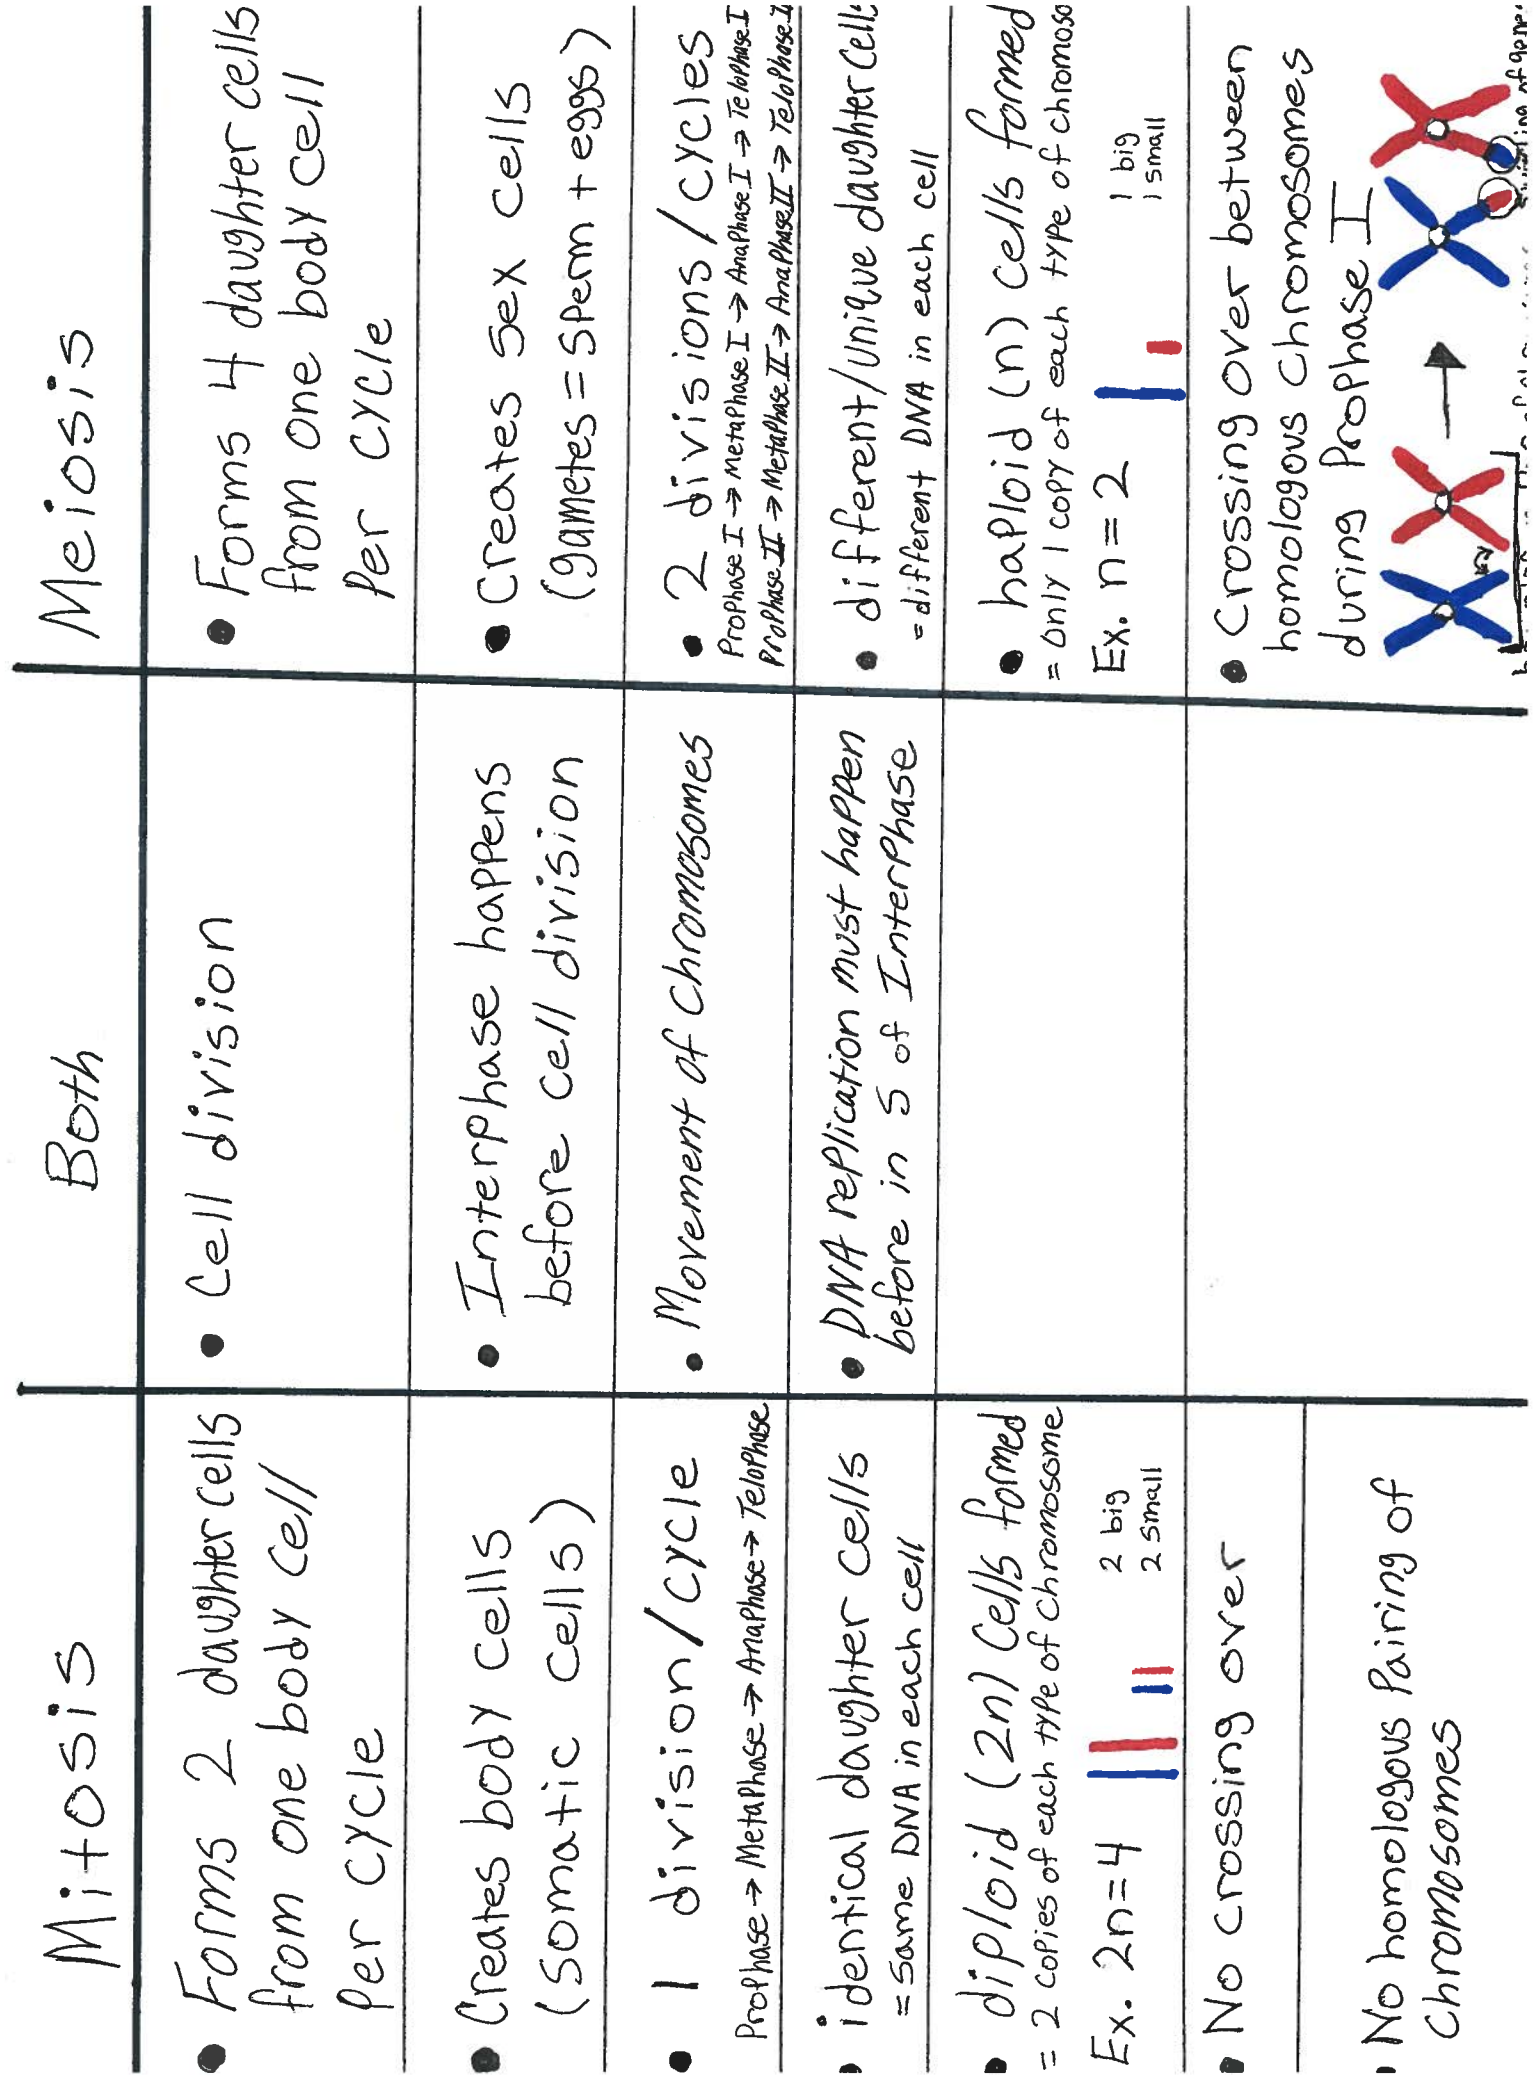 Mitosis
Both
Meiosis
• Forms 2 daughter cells
from one body cell
per cycle
• Cell division
• Forms 4 daughter cells
from one body cell
per cycle
• Creates body cells
(somatic cells)
• Interphase happens
before cell division
• Creates sex cells
(gametes = sperm + eggs)
• 1 division/cycle
Prophase → Metaphase → Anaphase → Telophase
• Movement of chromosomes
• 2 divisions/cycles
Prophase I → Metaphase I → Anaphase I → Telophase I
Prophase II → Metaphase II → Anaphase II → Telophase II
• identical daughter cells
= same DNA in each cell
• DNA replication must happen
before in S of Interphase
• different/unique daughter cells
= different DNA in each cell
• diploid (2n) cells formed
= 2 copies of each type of chromosome
Ex. 2n=4
2 big
2 small
• haploid (n) cells formed
= only 1 copy of each type of chromoso
Ex. n=2
1 big
1 small
• No crossing over
• Crossing over between
homologous chromosomes
during Prophase I
• No homologous pairing of
chromosomes